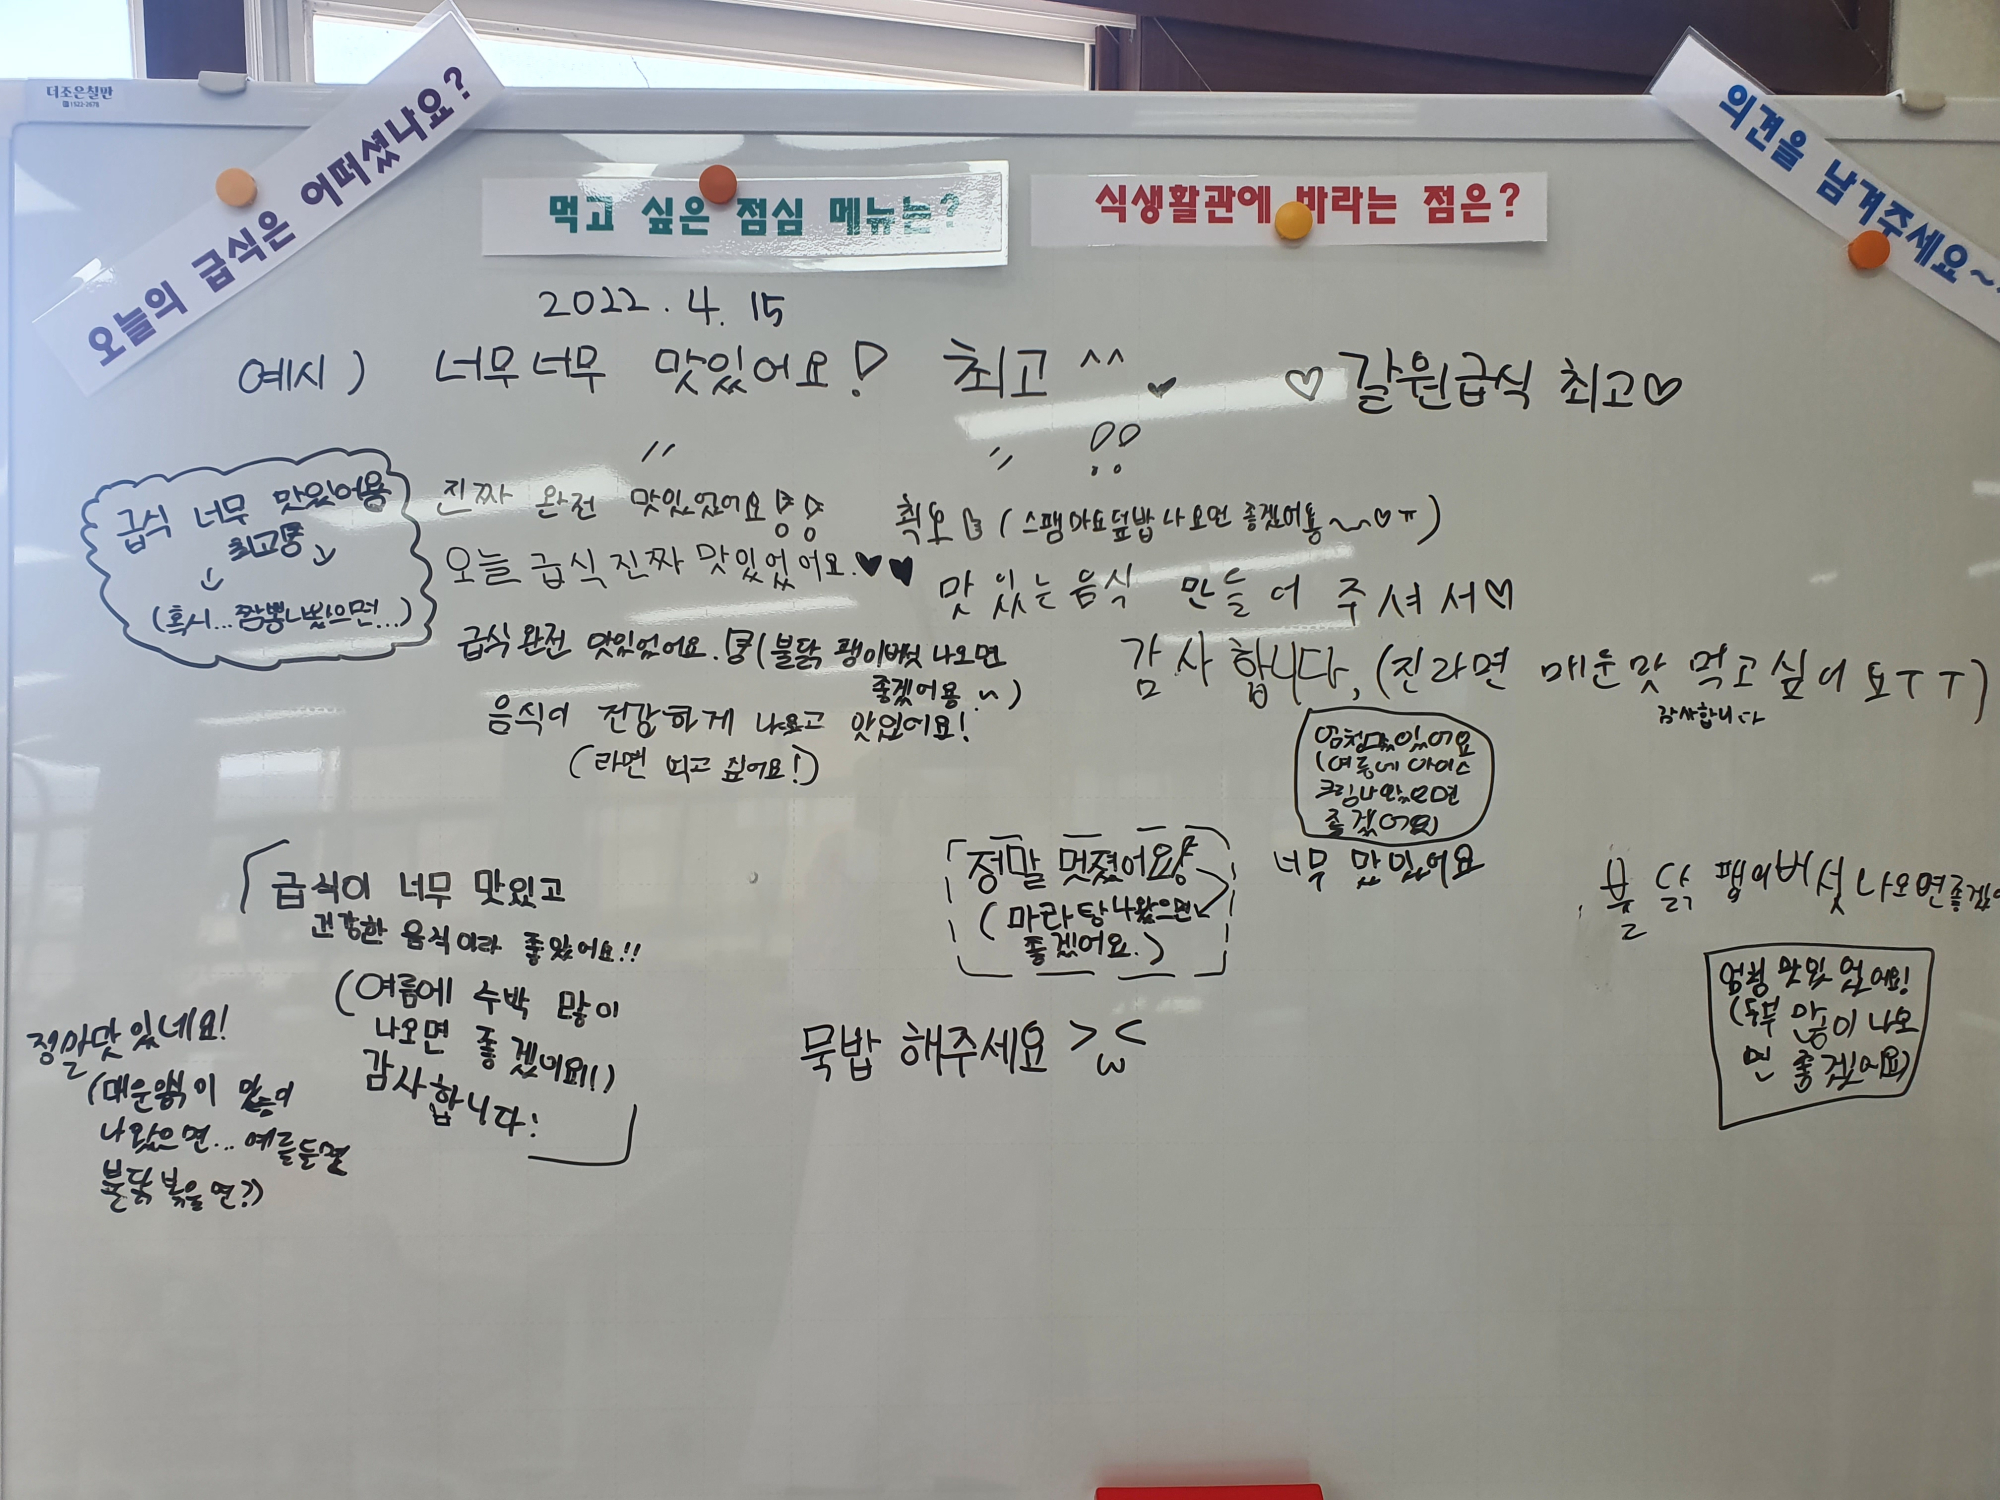 더조은칠판
☎1522-2678
오늘의 급식은 어떠셨나요?
먹고 싶은 점심 메뉴는?
식생활관에 바라는 점은?
의견을 남겨주세요~
2022. 4. 15
예시) 너무너무 맛있어요! 최고 ^^ ♥
♡ 갈원급식 최고♡
급식 너무 맛있어용
최고
(혹시... 짬뽕나왔으면...)
진짜 완전 맛있었어요!!
오늘 급식진짜 맛있었어요.♥♥
급식 완전 맛있었어요. (불닭 팽이버섯 나오면
좋겠어용 ~)
음식이 건강하게 나오고 맛있어요!
(라면 먹고 싶어요!)
(스팸마요덮밥 나오면 좋겠어용 ~♡ㅠ)
맛있는음식 만들어 주셔서♡
감사합니다, (진라면 매운맛 먹고싶어요ㅜㅜ)
감사합니다
엄청맛있어요
(여름에 아이스
크림나왔으면
좋겠어요)
너무 맛있어요
정말 멋졌어요!
(마라탕나왔으면
좋겠어요.)
불닭 팽이버섯나오면좋겠
엄청 맛있었어요!
(두부 많이 나오
면 좋겠어요)
급식이 너무 맛있고
건강한 음식이라 좋았어요!!
(여름에 수박 많이
나오면 좋겠어요!!)
감사합니다!
묵밥 해주세요 >ω<
정말맛있네요!
(매운음식이 많이
나왔으면... 예를들면
불닭볶음면?)